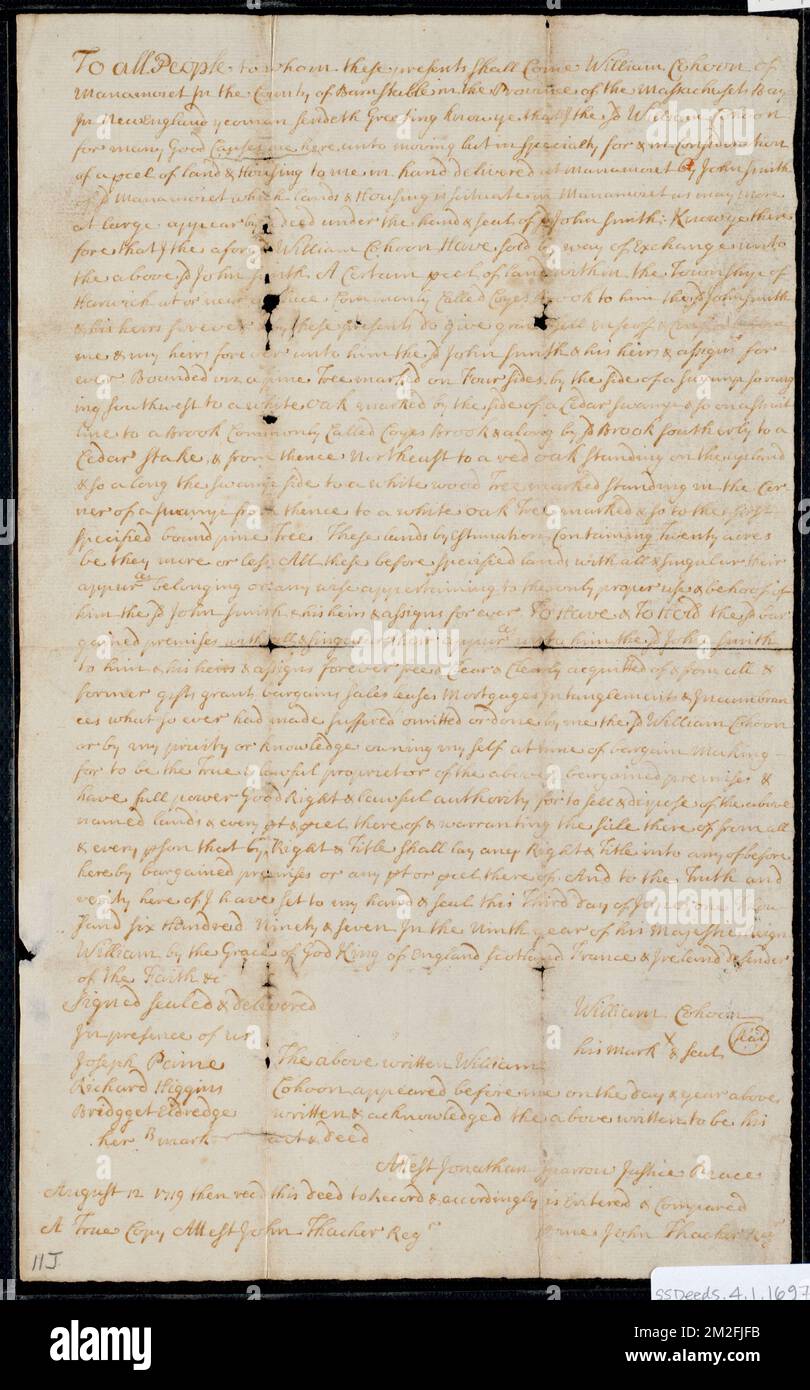 To all People to whom these presents shall Come William Cohoon of
Manamoiet In the County of Barnstable in the Province of the Massachusets Bay
In New England yeoman sendeth Greeting know ye that I the sd William Cohoon
for many Good Causes me here unto moving but in specialty for & in Consideration
of a pcel of land & Housing to me in hand delivered at Manamoiet by John Smith
of sd Manamoiet which lands & Housing is situate in Manamoiet as may more
at large appear by deed under the hand & seal of sd John Smith: Know ye there
fore that I the afore sd William Cohoon Have sold by way of Exchange unto
the above sd John Smith A Certain pcel of land within the Townshyp of
Harwich at or near a place Commonly Called Coyes Brook to him the sd John Smith
& his heirs forever by these presents do give grant sell
me & my heirs forever unto him the sd John Smith & his heirs & assigns for
ever Bounded viz a pine Tree marked on Four sides by the side of a swamp so runn
ing southwest to a white oak marked by the side of a Cedar Swamp & so on a strait
line to a Brook Commonly Called Coyes Brook & along by sd Brook southerly to a
Cedar Stake & from thence Northeast to a red oak standing on the upland
& so a long the swamp side to a white wood Tree marked standing in the Cor
ner of a swamp from thence to a white oak Tree marked & so to the first
specified bound pine Tree These lands by Estimation Containing Twenty acres
be they more or less All these before specified lands with all & singular their
appurces belonging or any wise appertaining to the only proper use & behoof of
him the sd John Smith & his heirs & assigns for ever To Have & To Hold the sd bar
gained premises with all & singular their appurces unto him the sd John Smith
to him & his heirs & assigns forever free & Clear & Clearly acquitted of & from all &
former gifts grants bargains sales leases Mortgages Intanglements & Incumbran
ces what so ever had made suffered omitted or done by me the sd William Cohoon
or by my privity or knowledge owning my self at time of bargain Making
for to be the True & lawful proprietor of the above bargained premises &
have full power Good Right & lawful authority for to sell & dispose of the above
named lands & every pt & pcel there of & warranting the sale there of from all
& every pson that by Right & Title shall lay any Right & Title into any of before
hereby bargained premises or any pt or pcel there of. And to the Truth and
verity here of I have set to my hand & seal this Third day of one thou
sand six Hundred Ninety & seven In the Ninth year of his Majesties reign
William by the Grace of God King of England Scotland France & Ireland defender
of the Faith &c
Signed sealed & delivered
In presence of us
William Cohoon
his mark X & seal
Seal
Joseph Paine
Richard Higgins
Bridgget Eldredge
her B mark
The above written William
Cohoon appeared before me on the day & year above
written & acknowledged the above written to be his
act & deed
Attest Jonathan Sparrow Justice Peace
August 12 1719 then recd this deed to Record & accordingly is Entered & Compared
A True Copy Attest John Thacher Regr
pr me John Thacher Regr
11J
SSDeeds.4.1.1697
alamy
Image ID: 2M2FJFB
www.alamy.com